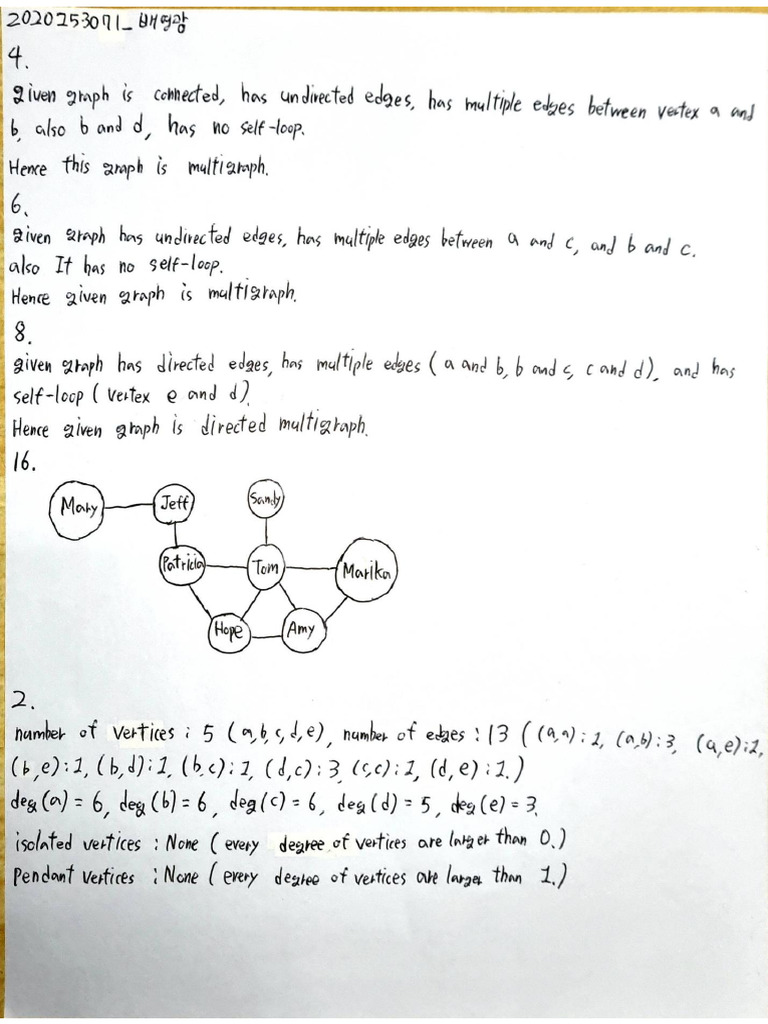 2020253071_배영광
4.
given graph is connected, has undirected edges, has multiple edges between vertex a and
b, also b and d, has no self-loop.
Hence this graph is multigraph.
6.
given graph has undirected edges, has multiple edges between a and c, and b and c.
also It has no self-loop.
Hence given graph is multigraph.
8.
given graph has directed edges, has multiple edges (a and b, b and c, c and d), and has
self-loop (vertex e and d).
Hence given graph is directed multigraph.
16.
Mary Jeff Sandy
Patricia Tom Marika
Hope Amy
2.
number of vertices : 5 (a,b,c,d,e), number of edges : 13 ((a,a):1, (a,b):3, (a,e):1,
(b,e):1, (b,d):1, (b,c):1, (d,c):3, (c,c):1, (d,e):1.)
deg(a)=6, deg(b)=6, deg(c)=6, deg(d)=5, deg(e)=3.
isolated vertices : None (every degree of vertices are larger than 0.)
Pendant vertices : None (every degree of vertices are larger than 1.)